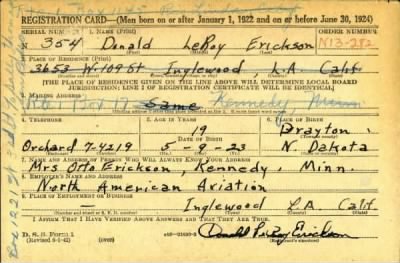 REGISTRATION CARD—(Men born on or after January 1, 1922 and on or before June 30, 1924)
SERIAL NUMBER 1. NAME (Print) ORDER NUMBER
N 354 Donald LeRoy Erickson N13-282
2. PLACE OF RESIDENCE (Print)
3653 W. 109 St Inglewood, L.A. Calif
[THE PLACE OF RESIDENCE GIVEN ON THE LINE ABOVE WILL DETERMINE LOCAL BOARD
JURISDICTION; LINE 1 OF REGISTRATION CERTIFICATE WILL BE IDENTICAL]
3. MAILING ADDRESS
Same Kennedy, Minn
4. TELEPHONE 5. AGE IN YEARS 6. PLACE OF BIRTH
19 Drayton
DATE OF BIRTH
Orchard 7-4219 5-9-23 N. Dakota
7. NAME AND ADDRESS OF PERSON WHO WILL ALWAYS KNOW YOUR ADDRESS
Mrs Otto Erickson, Kennedy, Minn.
8. EMPLOYER'S NAME AND ADDRESS
North American Aviation
9. PLACE OF EMPLOYMENT OR BUSINESS
— Inglewood L.A. Calif.
I AFFIRM THAT I HAVE VERIFIED ABOVE ANSWERS AND THAT THEY ARE TRUE.
D. S. S. Form 1
(Revised 6-1-42) (over) Donald LeRoy Erickson